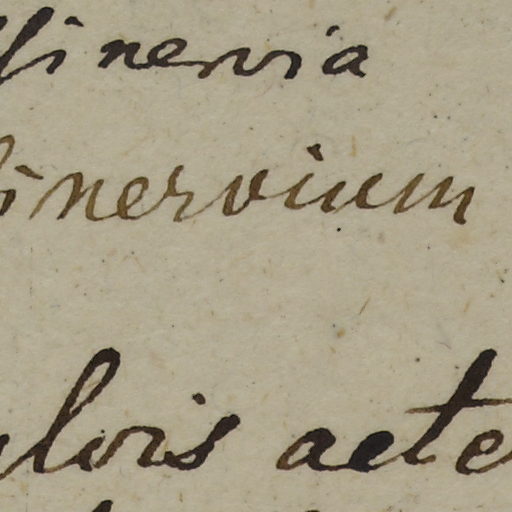 inervia
inervium
ulvis aete